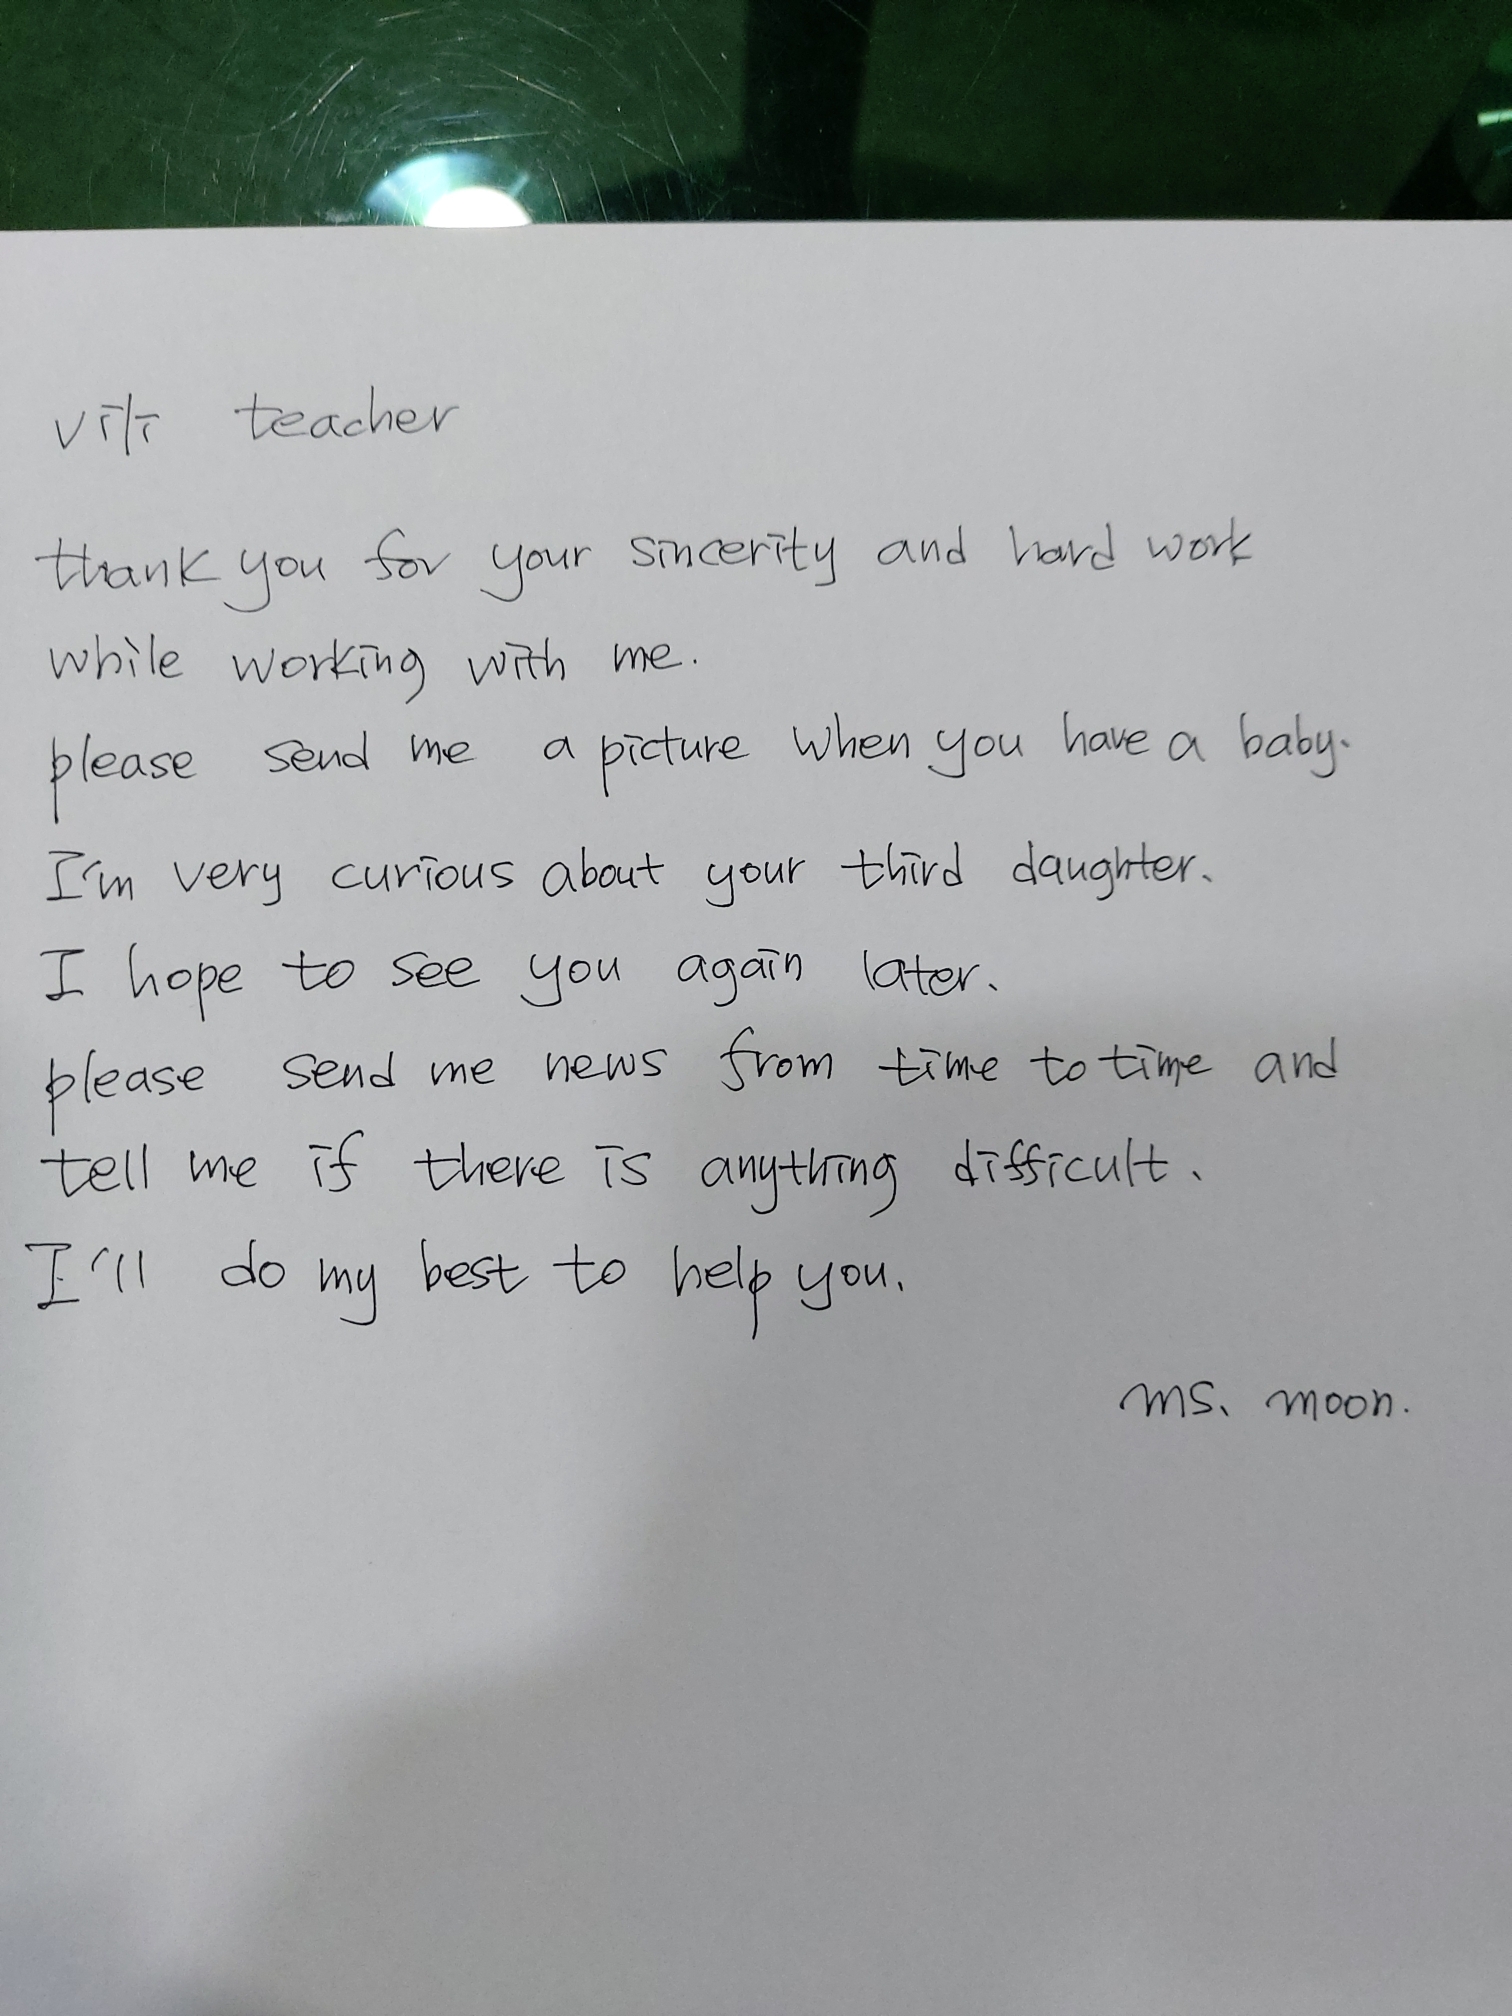 vili teacher
thank you for your sincerity and hard work
while working with me.
please send me a picture when you have a baby.
I'm very curious about your third daughter.
I hope to see you again later.
please send me news from time to time and
tell me if there is anything difficult.
I'll do my best to help you.
ms. moon.